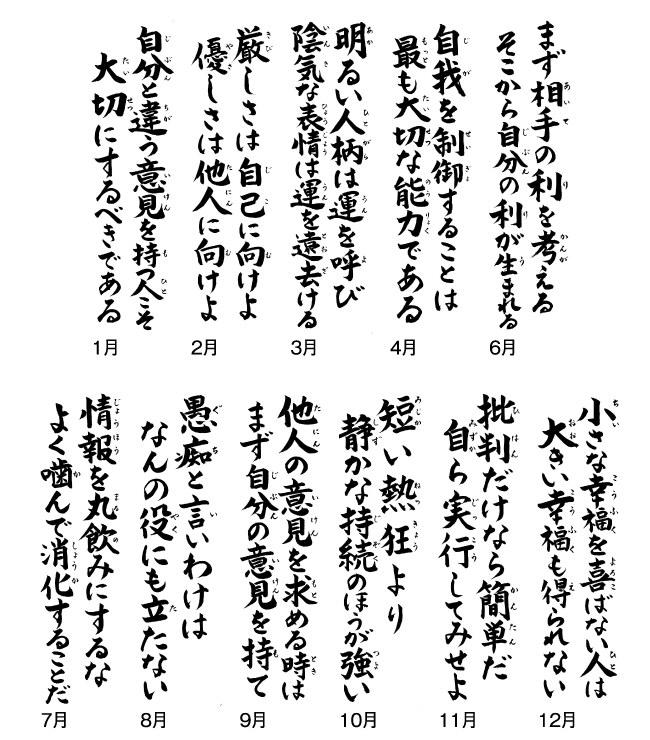 自分と違う意見を持つ人こそ
大切にするべきである
1月
厳しさは自己に向けよ
優しさは他人に向けよ
2月
明るい人柄は運を呼び
陰気な表情は運を遠去ける
3月
自我を制御することは
最も大切な能力である
4月
まず相手の利を考える
そこから自分の利が生まれる
6月
情報を丸飲みにするな
よく噛んで消化することだ
7月
愚痴と言いわけは
なんの役にも立たない
8月
他人の意見を求める時は
まず自分の意見を持て
9月
短い熱狂より
静かな持続のほうが強い
10月
批判だけなら簡単だ
自ら実行してみせよ
11月
小さな幸福を喜ばない人は
大きい幸福も得られない
12月